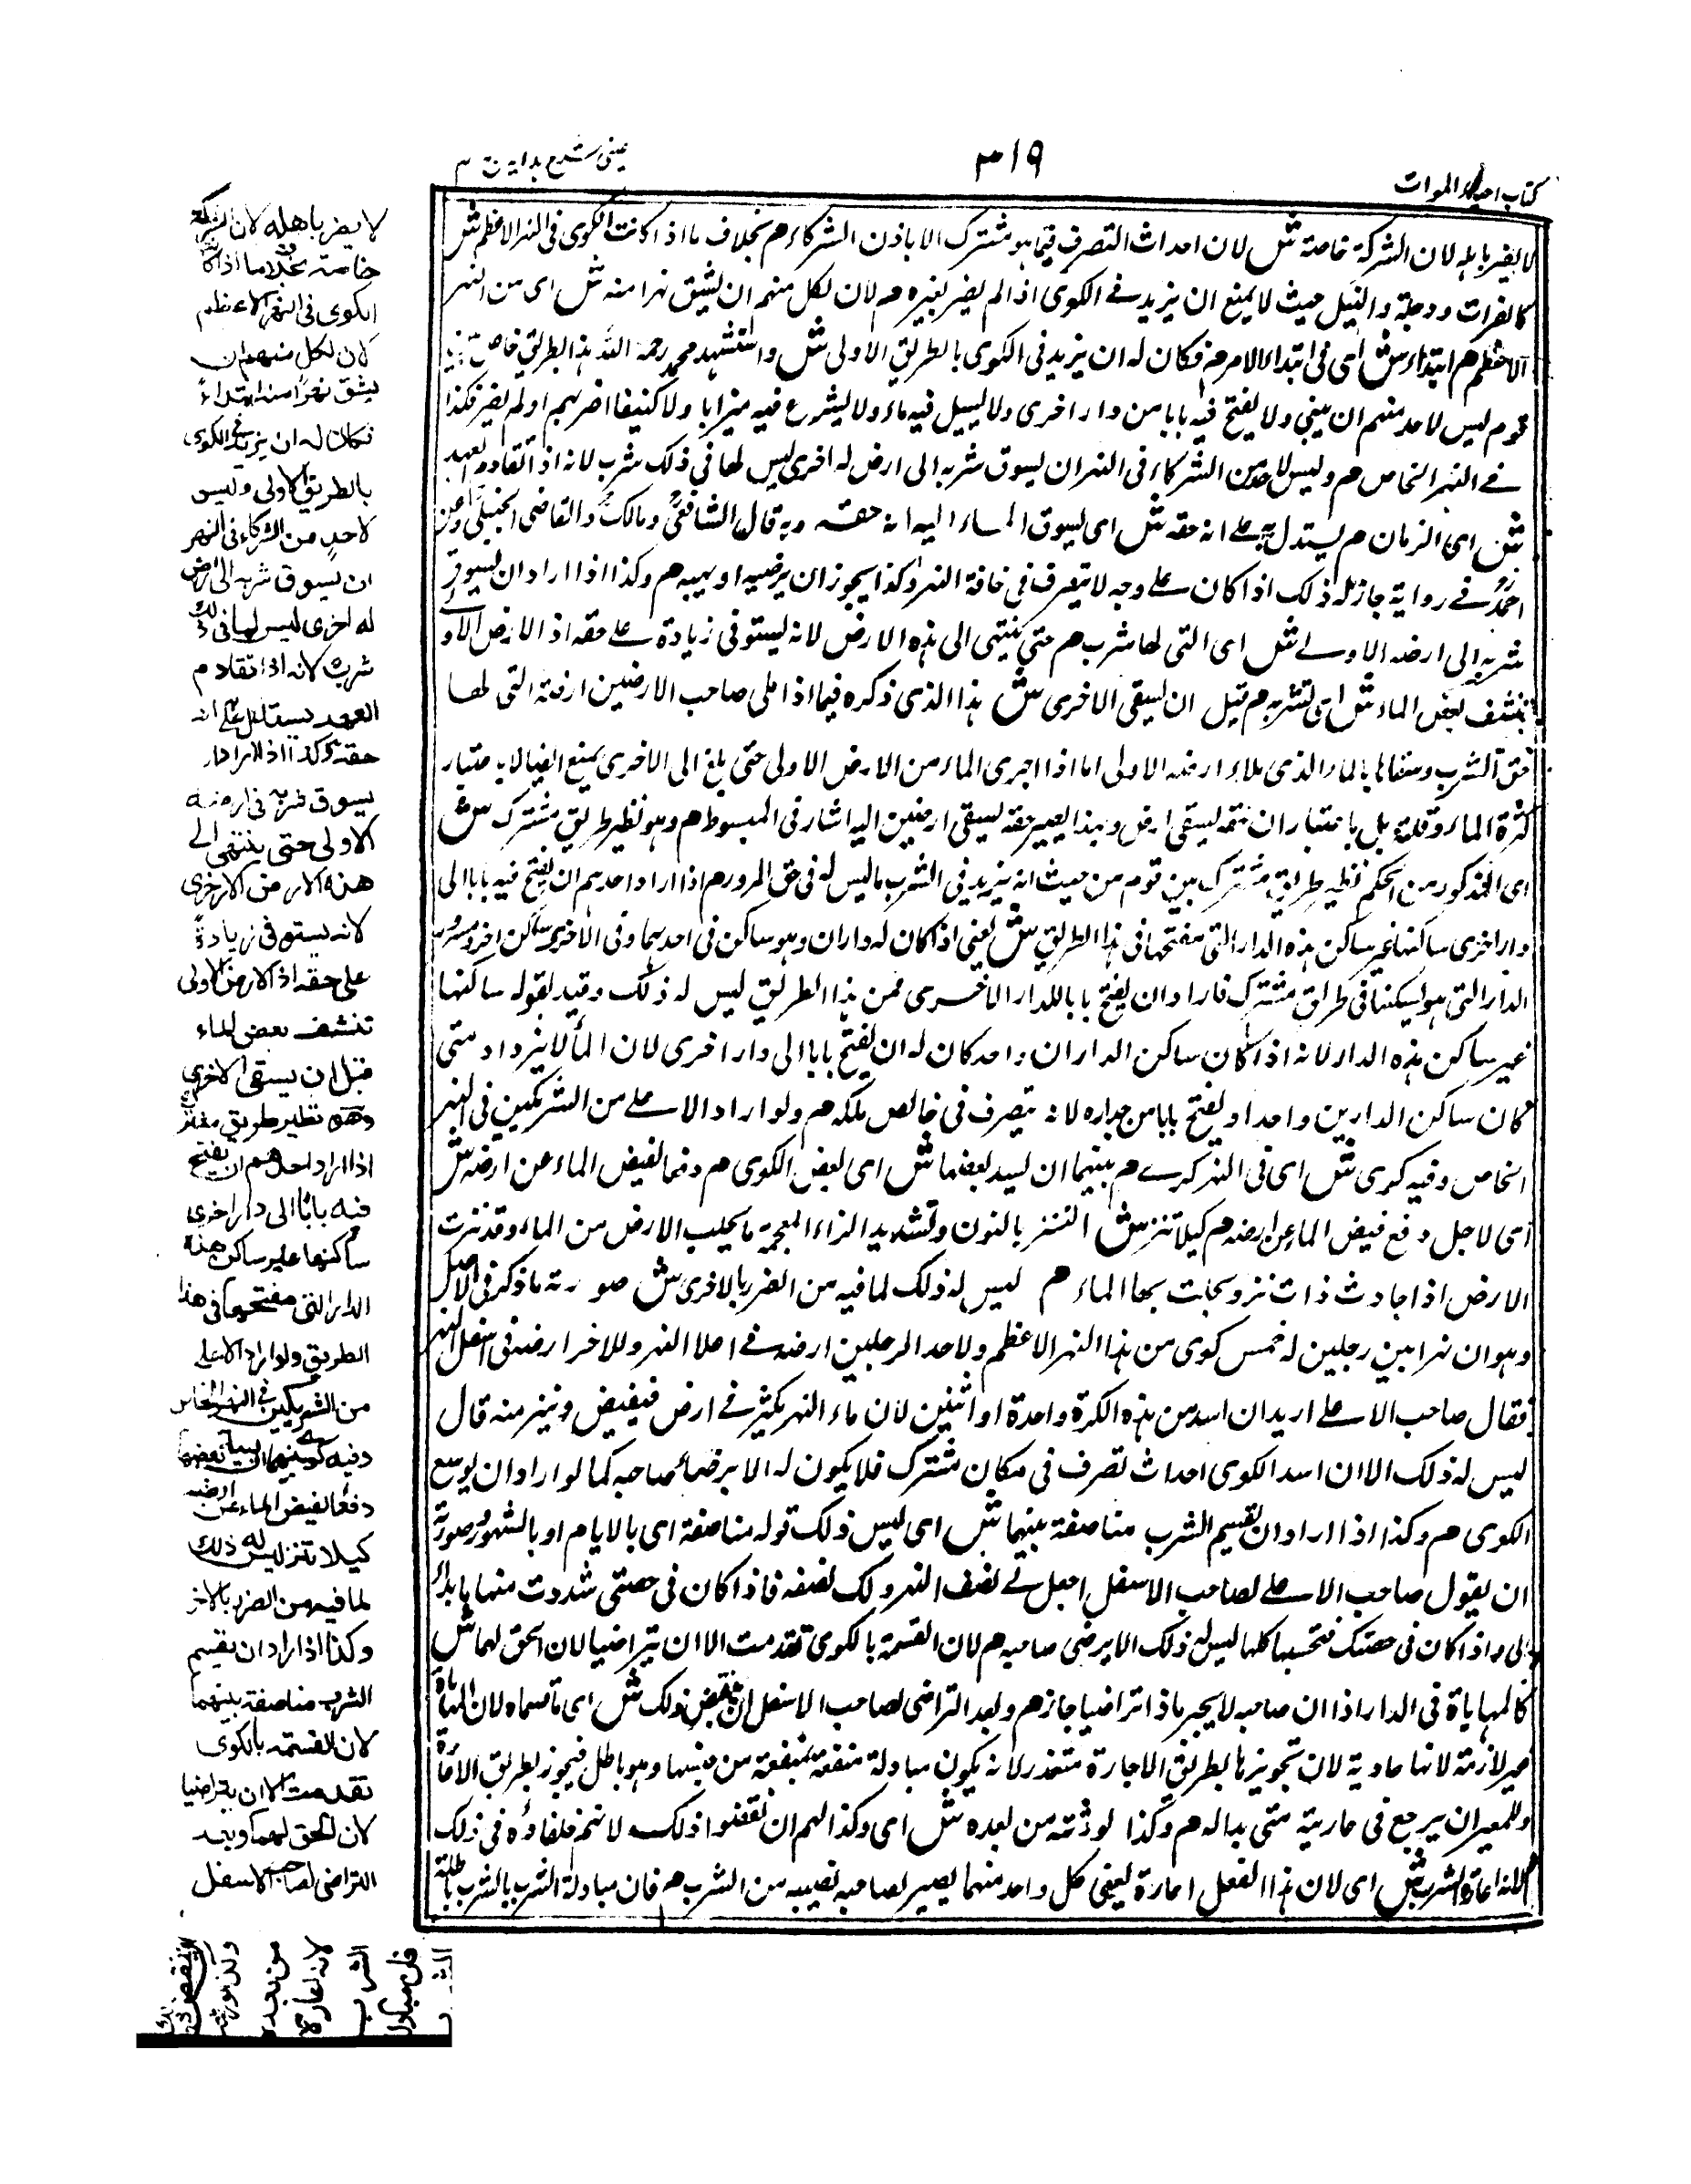 كتاب احياء الموات
٣١٩
عينى شرح هداية ج ٣
لا يضر باهله لان الشركة خاصة ش لان احداث التصرف فيما هو مشترك الا باذن الشركاء م بخلاف ما اذا كانت الكوى فى النهر الاعظم ش
كالفرات ودجلة والنيل حيث لا يمنع ان يزيد فے الكوى اذا لم يضر بغيره م لان لكل منهم ان يشق نهرا منه ش اى من النهر
الاعظم م ابتداء ش اى فى ابتداء الامر م فكان له ان يزيد فى الكوى بالطريق الاولى ش واستشهد محمد رحمه الله بهذا الطريق خاص بين
قوم ليس لاحد منهم ان يبنى ولا يفتح فيه بابا من دار اخرى ولا يسيل فيه ماء ولا يشرع فيه ميزابا ولا كنيفا اضر بهم او لم يضر فكذا
فے النهر الخاص م وليس لاحد من الشركاء فى النهر ان يسوق شربه الى ارض له اخرى ليس لها فى ذلك شرب لانه اذا تقادم العهد
ش اى الزمان م يستدل به على انه حقه ش اى يسوق الماء اليه انه حقه وبه قال الشافعى ومالك والقاضى الحنبلى وعن
احمد فے رواية جاز له ذلك اذا كان على وجه لا يتصرف فى حافة النهر وكذا يجوز ان يرضيه او يهبه م وكذا اذا اراد ان يسوق
شربه الى ارضه الاولے ش اى التى لها شرب م حتى ينتهى الى هذه الارض لانه يستوفى زيادة على حقه اذ الارض الاولى
تنشف بعض الماء ش اى تشربه م قبل ان يسقى الاخرى ش هذا الذى ذكره فيما اذا ملى صاحب الارضين ارضه التى لها
حق الشرب وسقاها بالماء الذى ملاء ارضه الاولى اما اذا اجرى الماء من الارض الاولى حتى بلغ الى الاخرى يمنع ايضا لا باعتبار
كثرة الماء وقلته بل باعتبار ان حقه يسقى ارض وبهذا يصير حقه يسقى ارضين اليه اشار فى المبسوط م وهو نظير طريق مشترك ش
اى المذكور من الحكم نظير طريق مشترك بين قوم من حيث انه يزيد فى الشرب ما ليس له فى حق المرور م اذا اراد احدهم ان يفتح فيه بابا الى
دار اخرى ساكنها غير ساكن هذه الدار التى مفتحها فى هذا الطريق ش يعنى اذا كان له داران وهو ساكن فى احدهما وفى الاخرى ساكن اخر
الدار التى هو يسكنها فى طريق مشترك فاراد ان يفتح بابا للدار الاخرى من هذا الطريق ليس له ذلك وقيد بقوله ساكنها
غير ساكن هذه الدار لانه اذا كان ساكن الداران واحد كان له ان يفتح بابا الى دار اخرى لان المار لا يزداد متى
كان ساكن الدارين واحدا ويفتح بابا من جداره لانه يتصرف فى خالص ملكه م ولو اراد الاعلى من الشريكين فى النهر
الخاص وفيه كوى ش اى فى النهر كرے م بينهما ان يسد بعضها ش اى بعض الكوى م دفعا لفيض الماء عن ارضه ش
اى لاجل دفع فيض الماء عن ارضه م كيلا تنز ش النز بالنون وتشديد الزاء المعجمة ما يحلب الارض من الماء وقد نزت
الارض اذا جادت ذات نز وتحلبت بها الماء م ليس له ذلك لما فيه من الضرر بالاخرى ش صورته ما ذكر فى الاصل
وهو ان نهرا بين رجلين له خمس كوى من هذا النهر الاعظم ولاحد الرجلين ارضه فے اعلا النهر وللاخر ارضه فى اسفل النهر
فقال صاحب الاعلى اريد ان اسد من هذه الكوة واحدة او اثنين لان ماء النهر يكثر فے ارض فيفيض وينز منه قال
ليس له ذلك الا ان اسد الكوى احداث تصرف فى مكان مشترك فلا يكون له الا برضا صاحبه كما لو اراد ان يوسع
الكوى م وكذا اذا اراد ان يقسم الشرب مناصفة بينهما ش اى ليس ذلك قوله مناصفة اى بالايام او بالشهور وصورته
ان يقول صاحب الاعلى لصاحب الاسفل اجعل لے نصف النهر ولك نصفه فاذا كان فى حصتى شددت منها ما بدا
لى واذا كان فى حصتك فتحتها كلها ليس له ذلك الا برضى صاحبه م لان القسمة بالكوى تقدمت الا ان يتراضيا لان الحق لهما ش
كالمهاياة فى الدار اذا ان صاحبه لا يجبر ماذا تراضيا جاز م وبعد التراضى لصاحب الاسفل ان ينقض ذلك ش اى ما قسماه لان المهاياة
غير لازمة لانها عارية لان تجويزها بطريق الاجارة متعذر لانه يكون مبادلة منفعة بمنفعة من جنسها وهو باطل فيجوز بطريق الاعارة
وللمعير ان يرجع فى عاريته متى بدا له م وكذا لورثته من بعده ش اى وكذا لهم ان نقضوا ذلك لانهم خلفاؤه فى ذلك
م لانه اعارة الشرب ش اى لان هذا الفعل اعارة يعنى كل واحد منهما يعير لصاحبه نصيبه من الشرب م فان مبادلة الشرب بالشرب باطلة
لا يضر باهله لان الشركة
خاصة بخلاف ما اذا كانت
الكوى فى النهر الاعظم
لان لكل منهم ان
يشق نهرا منه ابتداء
فكان له ان يزيد فى الكوى
بالطريق الاولى وليس
لاحد من الشركاء فى النهر
ان يسوق شربه الى ارض
له اخرى ليس لها فى ذلك
شرب لانه اذا تقادم
العهد يستدل به على انه
حقه وكذا اذا اراد ان
يسوق شربه فى ارضه
الاولى حتى ينتهى الى
هذه الارض الاخرى
لانه يستوفى زيادة
على حقه اذ الارض الاولى
تنشف بعض الماء
قبل ان يسقى الاخرى
وهو نظير طريق مشترك
اذا اراد احدهم ان يفتح
فيه بابا الى دار اخرى
ساكنها غير ساكن هذه
الدار التى مفتحها فى هذا
الطريق ولو اراد الاعلى
من الشريكين فى النهر الخاص
وفيه كوى بينهما ان يسد بعضها
دفعا لفيض الماء عن ارضه
كيلا تنز ليس له ذلك
لما فيه من الضرر بالاخر
وكذا اذا اراد ان يقسم
الشرب مناصفة بينهما
لان القسمة بالكوى
تقدمت الا ان يتراضيا
لان الحق لهما وبعد
التراضى لصاحب الاسفل
ان ينقض ذلك
وكذا لورثته
من بعده
لانه اعارة
الشرب
فان مبادلة